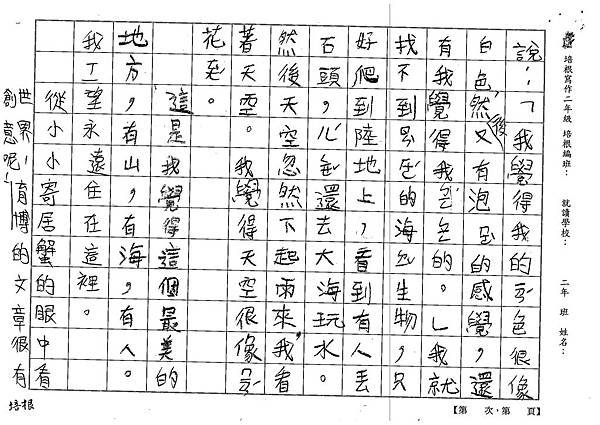 培根寫作二年級 培根編班： 就讀學校： 二年 班 姓名：
說：「我覺得我的色很像
白色，然後又有泡的感覺，還
有我覺得我的。」我就
找不到的海生物，只
好爬到陸地上，看到有人丟
石頭，心還去大海玩水。
然後天空忽然下起雨來，我看
著天空。我覺得天空很像
花。
這是我覺得這個最美的
地方，有山，有海，有人。
我ㄒ望永遠住在這裡。
從小小寄居蟹的眼中看
世界！育博的文章很有
創意呢！
【第 次‧第 頁】
培根